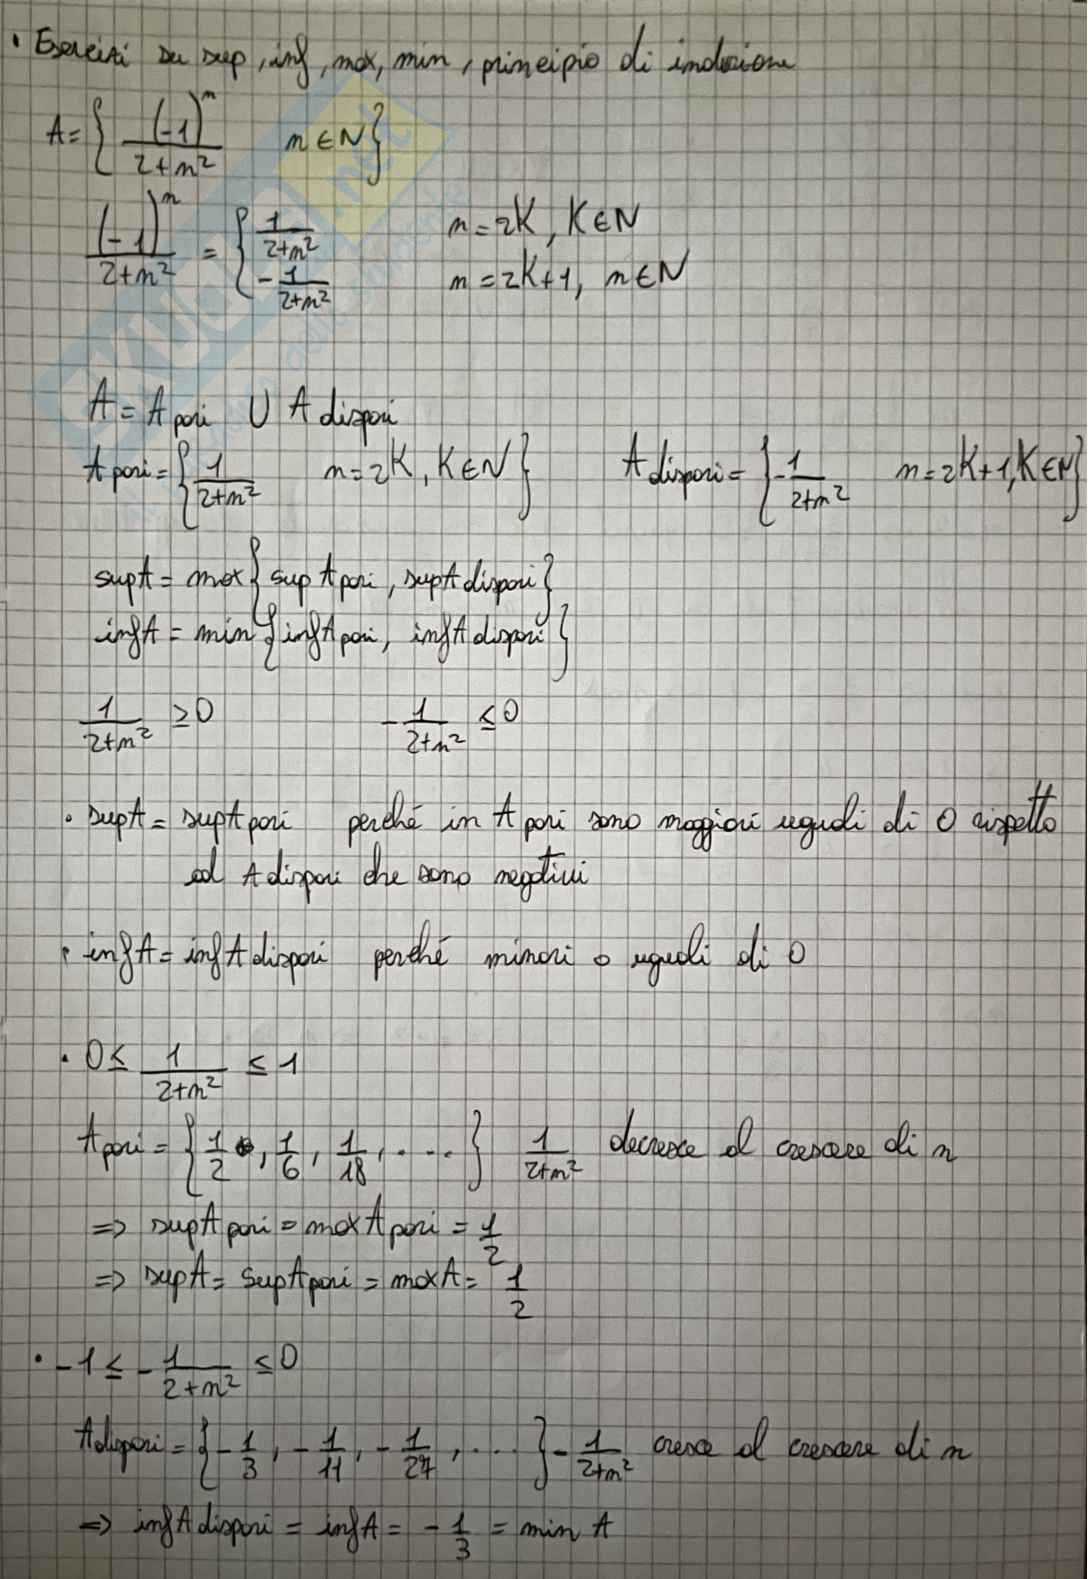 • Esercizi su sup, inf, max, min, principio di induzione
A = { (-1)^n / 2+n² n ∈ N }
(-1)^n / 2+n² = { 1 / 2+n² n = 2K, K ∈ N
- 1 / 2+n² n = 2K+1, n ∈ N
A = A pari ∪ A dispari
A pari = { 1 / 2+n² n = 2K, K ∈ N } A dispari = { - 1 / 2+n² n = 2K+1, K ∈ N }
sup A = max { sup A pari, sup A dispari }
inf A = min { inf A pari, inf A dispari }
1 / 2+n² ≥ 0 - 1 / 2+n² ≤ 0
• sup A = sup A pari perché in A pari sono maggiori uguali di 0 rispetto
ad A dispari che sono negativi
• inf A = inf A dispari perché minori o uguali di 0
• 0 ≤ 1 / 2+n² ≤ 1
A pari = { 1/2, 1/6, 1/18, .... } 1 / 2+n² decresce al crescere di n
=> sup A pari = max A pari = 1/2
=> sup A = sup A pari = max A = 1/2
• -1 ≤ - 1 / 2+n² ≤ 0
A dispari = { - 1/3, - 1/11, - 1/27, .... } - 1 / 2+n² cresce al crescere di n
=> inf A dispari = inf A = - 1/3 = min A